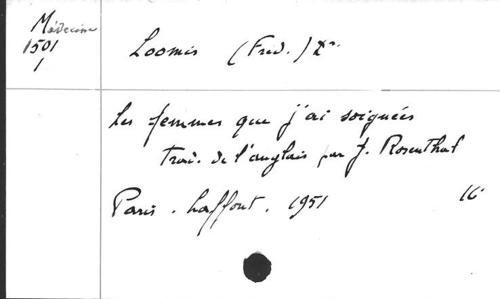 Médecine
1501
1
Loomis (Fred.) Dr.
Les femmes que j'ai soignées
Trad. de l'anglais par J. Rosenthal
Paris. Laffont. 1951 16°